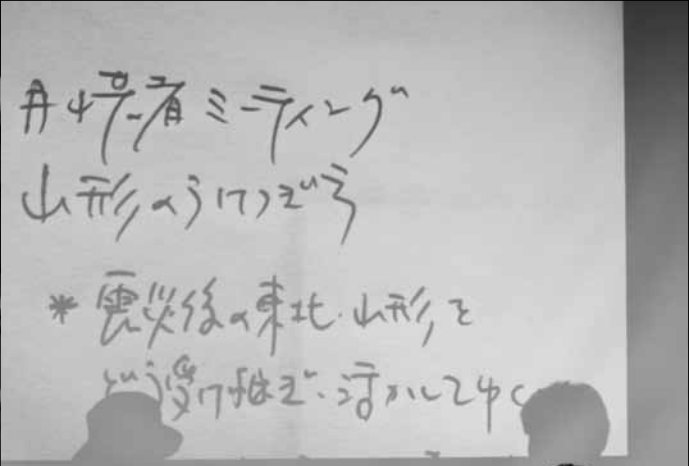 ミーティング
山形のうけつぎ方
* 震災後の東北・山形を
どう受け継ぎ・活かしてゆく